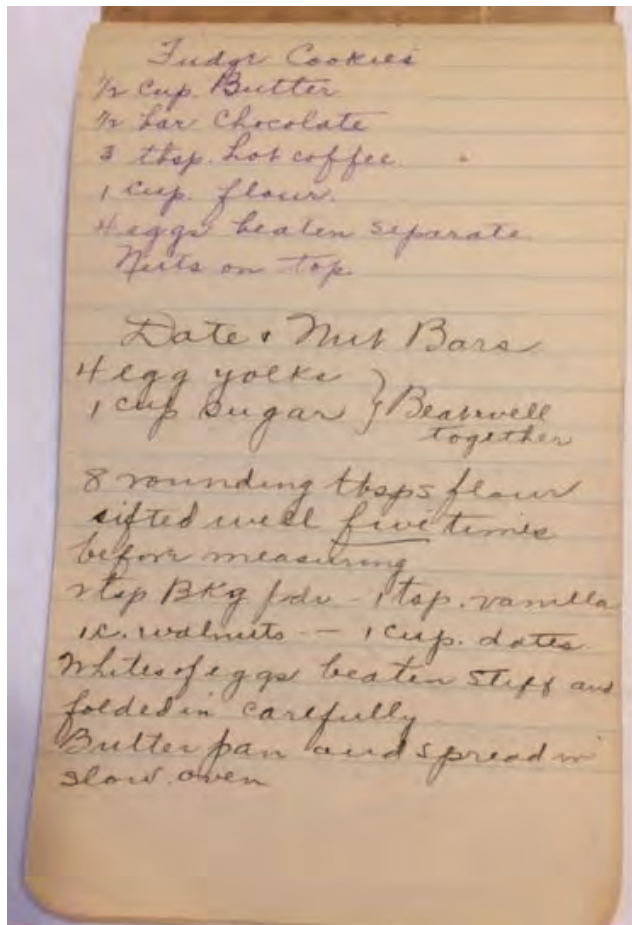 Fudge Cookies
1/2 cup Butter
1/2 bar Chocolate
3 tbsp. hot coffee.
1 cup. flour.
4 eggs beaten separate
Nuts on top
Date & Nut Bars
4 egg yolks
1 cup sugar } Beat well
together
8 rounding tbsps flour
sifted well five times
before measuring
2 tsp Bkg pdr - 1 tsp. vanilla
1 c. walnuts -- 1 cup. dates
Whites of eggs beaten stiff and
folded in carefully
Butter pan and spread in
slow oven